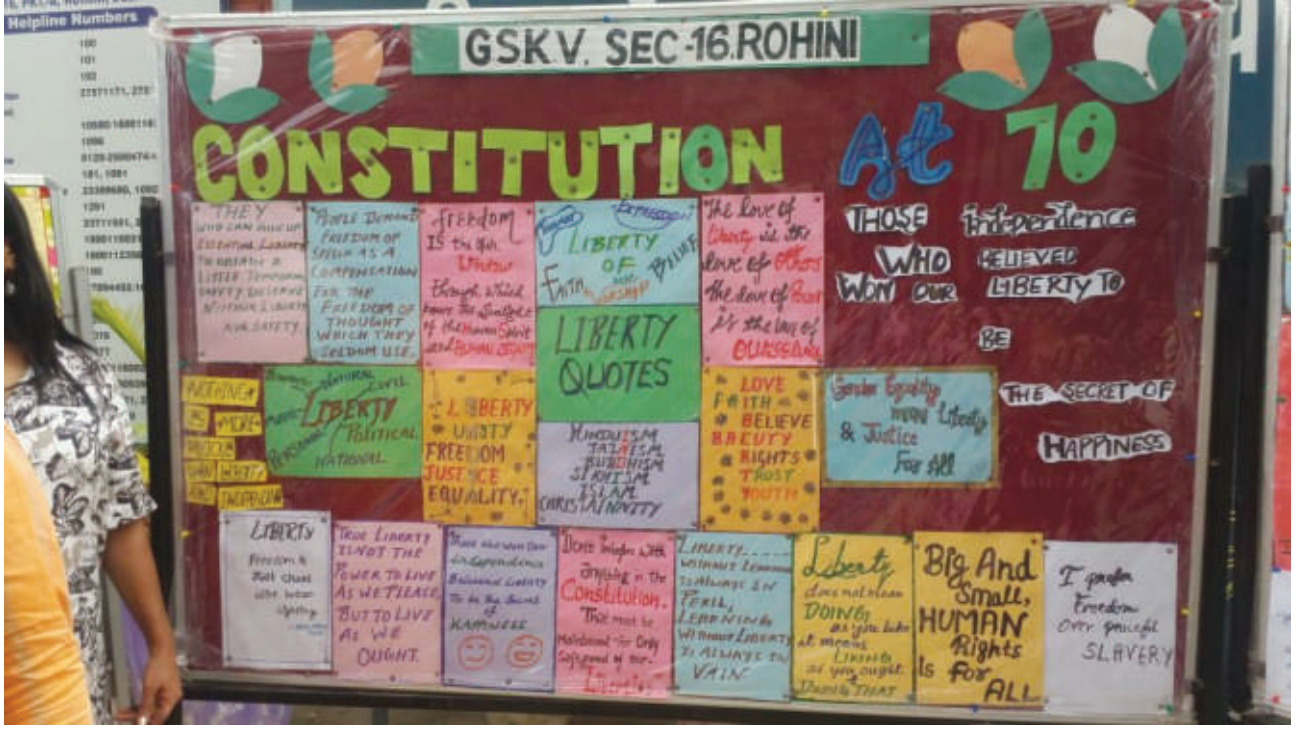 Helpline Numbers
100
101
GSKV. SEC-16.ROHINI
CONSTITUTION At 70
THEY
WHO CAN GIVE UP
ESSENTIAL LIBERTY
TO OBTAIN A
LITTLE TEMPORARY
SAFETY DESERVE
NEITHER LIBERTY
NOR SAFETY
PEOPLE DEMAND
FREEDOM OF
SPEECH AS A
COMPENSATION
FOR THE
FREEDOM OF
THOUGHT
WHICH THEY
SELDOM USE.
freedom
IS the
Window
through which
of the Human Spirit
and HUMAN
EXPRESSION
LIBERTY
OF
FAITH
LIBERTY
QUOTES
The love of
Liberty is the
love of Others
the love of Power
is the love of
THOSE independence
WHO BELIEVED
WON OUR LIBERTY TO
BE
THE SECRET OF
HAPPINESS
NOTHING
IS MORE
THAN LIBERTY
AND
NATURAL
CIVIL
LIBERTY
POLITICAL
PERSONAL
NATIONAL
LIBERTY
UNITY
FREEDOM
JUSTICE
EQUALITY.
HINDUISM
JAINISM
BUDDHISM
SIKHISM
ISLAM
CHRISTAINNITY
LOVE
FAITH
BELIEVE
BAEUTY
RIGHTS
TRUST
YOUTH
Gender Equality
Liberty
& Justice
For All
LIBERTY
Freedom is
TRUE LIBERTY
IS NOT THE
POWER TO LIVE
AS WE PLEASE,
BUT TO LIVE
AS WE
OUGHT.
Those who won our
independence
Believed Liberty
To be the Secret
of
HAPPINESS
Don't Interfere With
anything in the
Constitution.
That must be
Maintained for Only
Safeguard of our
Liberties
LIBERTY
WITHOUT LEARNING
IS ALWAYS IN
PERIL,
LEARNING
WITHOUT LIBERTY
IS ALWAYS IN
VAIN
Liberty
does not mean
DOING
as you like
it means
as you ought.
DOING THAT
Big And
Small,
HUMAN
Rights
Is For
ALL
I prefer
Freedom
Over peaceful
SLAVERY